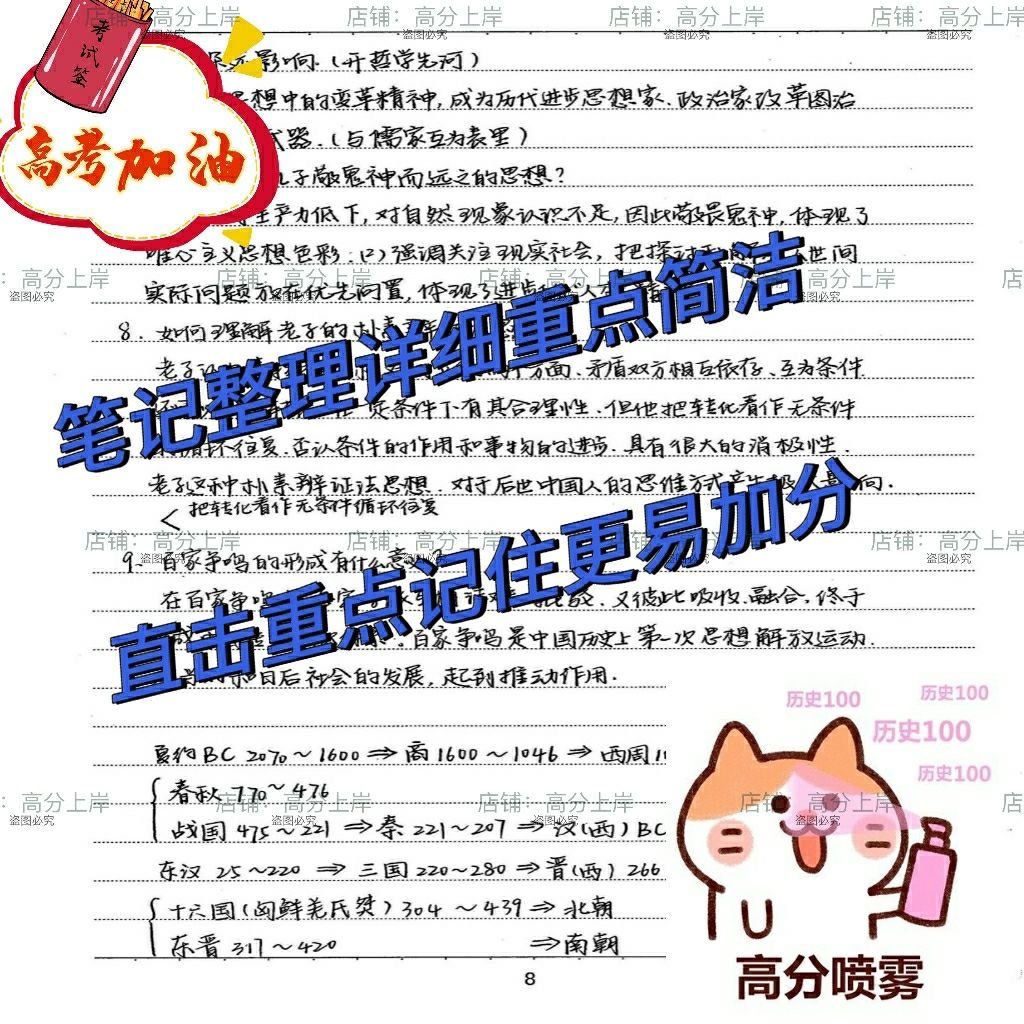 店铺：高分上岸
盗图必究
考试签
高考加油
影响.(开哲学先河)
思想中的变革精神,成为历代进步思想家、政治家改革图治
武器.(与儒家互为表里)
孔子敬鬼神而远之的思想?
生产力低下,对自然现象认识不足,因此敬畏鬼神,体现了
唯心主义思想色彩.(2)强调关注现实社会,把探讨 世间
实际问题放在优先位置,体现了进步
笔记整理详细重点简洁
8. 如何理解老子的朴素
老子 方面,矛盾双方相互依存、互为条件
定条件下有其合理性.但他把转化看作无条件
循环往复.否认条件的作用和事物的进步.具有很大的消极性.
老子这种朴素辩证法思想.对于后世中国人的思维方式产生 影响.
<把转化看作无条件循环往复
直击重点记住更易加分
9. 百家争鸣的形成有什么意义
在百家争鸣中 又彼此吸收、融合,终于
百家争鸣是中国历史上第一次思想解放运动.
日后社会的发展,起到推动作用.
夏约BC 2070~1600 ⇒ 商1600~1046 ⇒ 西周
春秋 770~476
战国 475~221 ⇒ 秦 221~207 ⇒ 汉(西)BC
东汉 25~220 ⇒ 三国 220~280 ⇒ 晋(西) 266
十六国(匈鲜羌氐羯)304 ~439 ⇒ 北朝
东晋 317~420 ⇒南朝
8
历史100
历史100
历史100
历史100
高分喷雾